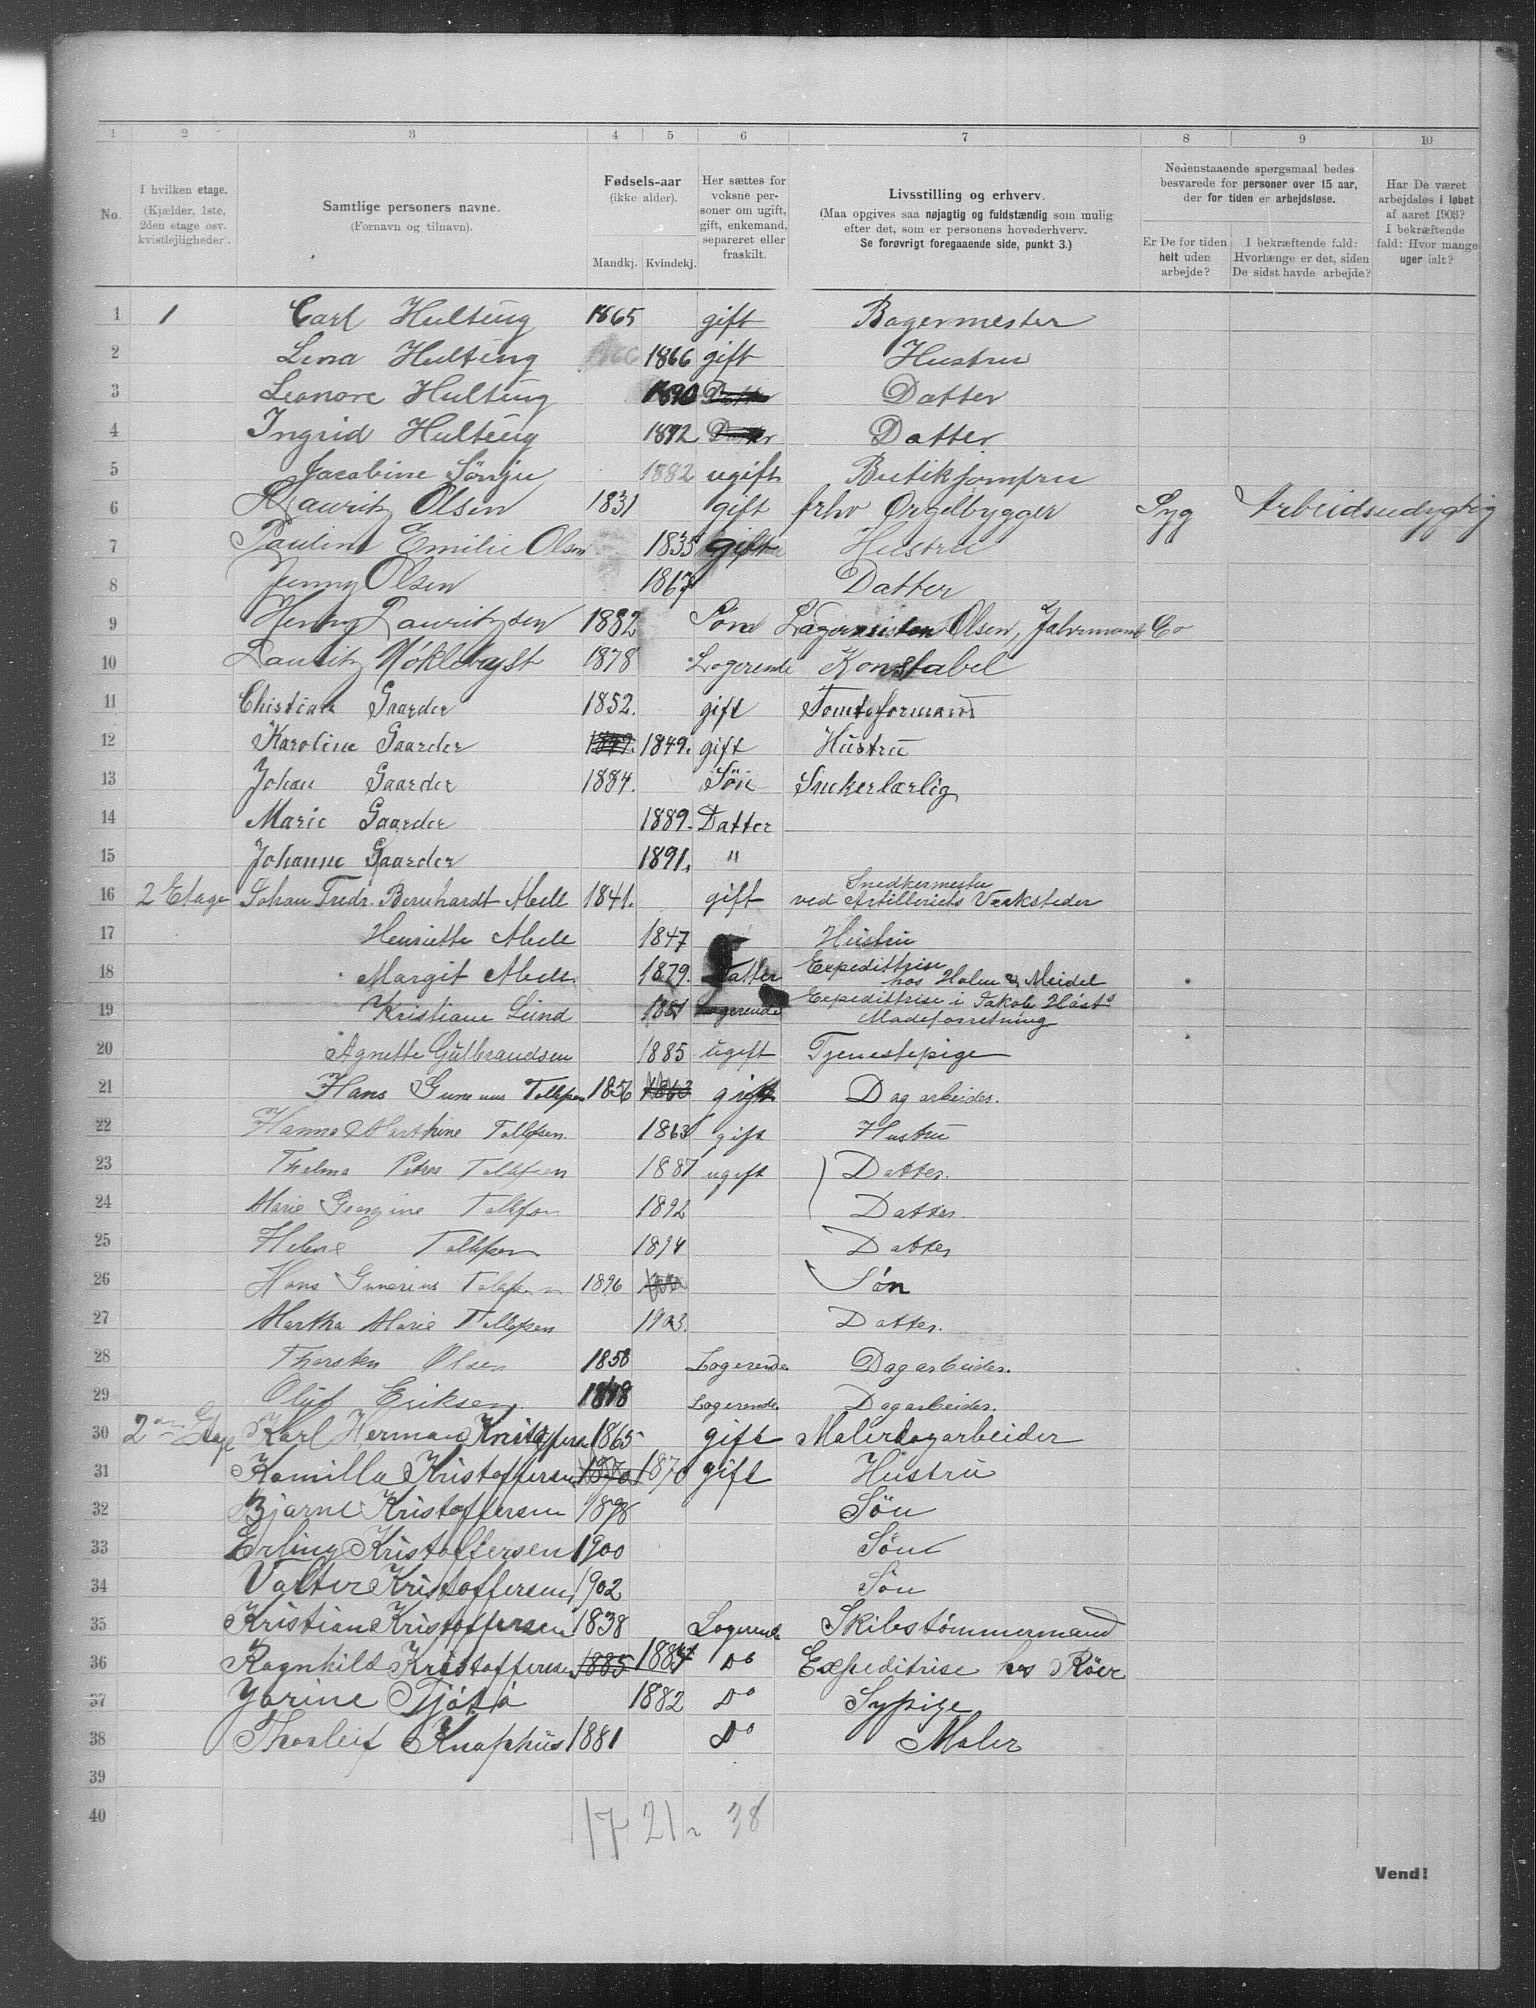 1 2 3 4 5 6 7 8 9 10
No.
I hvilken etage.
(Kjælder, 1ste,
2den etage osv.
kvistlejligheder).
Samtlige personers navne.
(Fornavn og tilnavn).
Fødsels-aar
(ikke alder).
Mandkj. Kvindekj.
Her sættes for
voksne per-
soner om ugift,
gift, enkemand,
separeret eller
fraskilt.
Livsstilling og erhverv.
(Maa opgives saa nøjagtig og fuldstændig som mulig
efter det, som er personens hovederhverv.
Se forøvrigt foregaaende side, punkt 3.)
Nedenstaaende spørgsmaal bedes
besvarede for personer over 15 aar,
der for tiden er arbejdsløse.
Er De for tiden
helt uden
arbejde?
I bekræftende fald:
Hvorlænge er det, siden
De sidst havde arbejde?
Har De været
arbejdsløs i løbet
af aaret 1903?
I bekræftende
fald: Hvor mange
uger ialt?
1 1 Carl Hulting 1865 gift Bagermester
2 Lina Hulting 1866 gift Hustru
3 Leonore Hulting 1890 Datter Datter
4 Ingrid Hulting 1892 Datter Datter
5 Jacobine Sönju 1882 ugift Butikjomfru
6 Lauritz Olsen 1831 gift frhv Orgelbygger Syg Arbeidsudygtig
7 Pauline Emilie Olsen 1835 gift Hustru
8 Jenny Olsen 1867 Datter
9 Henry Lauritzsen 1882 Søn Olsen, & Co
10 Lauritz Nøklebyst 1878 Logerende Konstabel
11 Christian Gaarder 1852. gift Tomteformand
12 Karoline Gaarder 1849. gift Hustru
13 Johan Gaarder 1884. Søn Snekerlærlig
14 Marie Gaarder 1889. Datter
15 Johanne Gaarder 1891. "
16 2 Etage Johan Fredr. Bernhardt Abell 1841. gift Snedkermester
ved Artilleriets Værksteder
17 Henriette Abell 1847 Hustru
18 Margit Abell 1879. Datter Expeditrise
hos Holm & Meidel
19 Kristiane Lund 1881 Logerende Expeditrise i Jakob Høsts
Madeforretning
20 Agnette Gulbrandsen 1885 ugift Tjenestepige
21 Hans Gunerius Tollefsen 1856 1863 gift Dagarbeider.
22 Hanna Marthine Tollefsen. 1863 gift Hustru
23 Thelma Petra Tollefsen 1887 ugift Datter.
24 Marie Georgine Tollefsen 1892 Datter.
25 Helene Tollefsen 1894 Datter
26 Hans Gunerius Tollefsen 1896 Søn
27 Martha Marie Tollefsen 1903. Datter.
28 Thorsten Olsen 1858 Logerende Dagarbeider.
29 Oluf Eriksen. 1848 Logerende Dagarbeider.
30 2den Etage Karl Herman Kristoffersen 1865 gift Malerdagarbeider
31 Kamilla Kristoffersen 1870 1870 gift Hustru
32 Bjarne Kristoffersen 1898 Søn
33 Erling Kristoffersen 1900 Søn
34 Valter Kristoffersen 1902 Søn
35 Kristian Kristoffersen 1838 Logerende Skibstømmermand
36 Ragnhild Kristoffersen 1885 1884 Do Expeditrise hos Röer
37 Jorine Tjøtö 1882 Do Sypige
38 Thorleif Knaphus 1881 Do Maler
39
40
17 21 38
Vend!